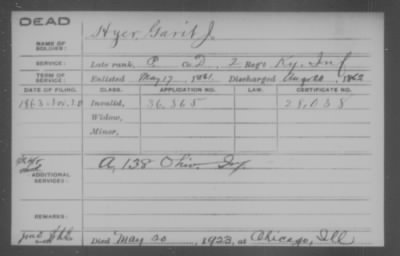 DEAD
NAME OF SOLDIER: Hyer, Garit J.
SERVICE: Late rank, P. Co. D, 2 Reg't Ky. Inf
TERM OF SERVICE: Enlisted May 17, 1861 Discharged Aug 20, 1862
DATE OF FILING. CLASS. APPLICATION NO. LAW. CERTIFICATE NO.
1863-Nov. 30 Invalid, 36,365 28,038
Widow,
Minor,
ADDITIONAL SERVICES: A, 138 Ohio. Inf.
REMARKS:
Died May 30, 1923, at Chicago, Ill